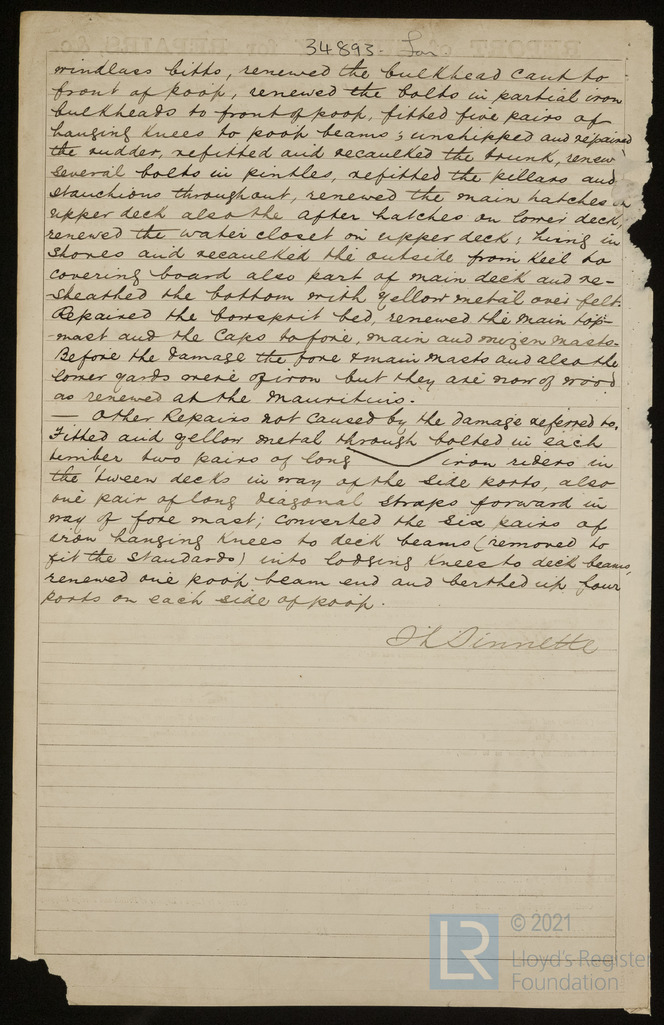 34893. Lon
windlass bitts, renewed the bulkhead cant to
front of poop, renewed the bolts in partial iron
bulkheads to front of poop, fitted five pairs of
hanging knees to poop beams; unshipped and repaired
the rudder, refitted and recaulked the trunk, renew
several bolts in pintles, refitted the pillars and
stanchions throughout, renewed the main hatches on
upper deck also the after hatches on lower deck,
renewed the water closet on upper deck; hung in
shores and recaulked the outside from keel to
covering board also part of main deck and re-
sheathed the bottom with yellow metal over felt.
Repaired the bowsprit bed, renewed the main top-
-mast and the caps to fore, main and mizen masts.
Before the damage the fore & main masts and also the
lower yards were of iron but they are now of wood
as renewed at the Mauritius.
— Other Repairs not caused by the damage referred to.
Fitted and yellow metal through bolted in each
timber two pairs of long iron riders in
the 'tween decks in way of the side ports, also
one pair of long diagonal straps forward in
way of fore mast; converted the six pairs of
iron hanging knees to deck beams (removed to
fit the standards) into lodging knees to deck beams,
renewed one poop beam end and berthed up four
ports on each side of poop.
Sinnette
LR © 2021
Lloyd's Register
Foundation